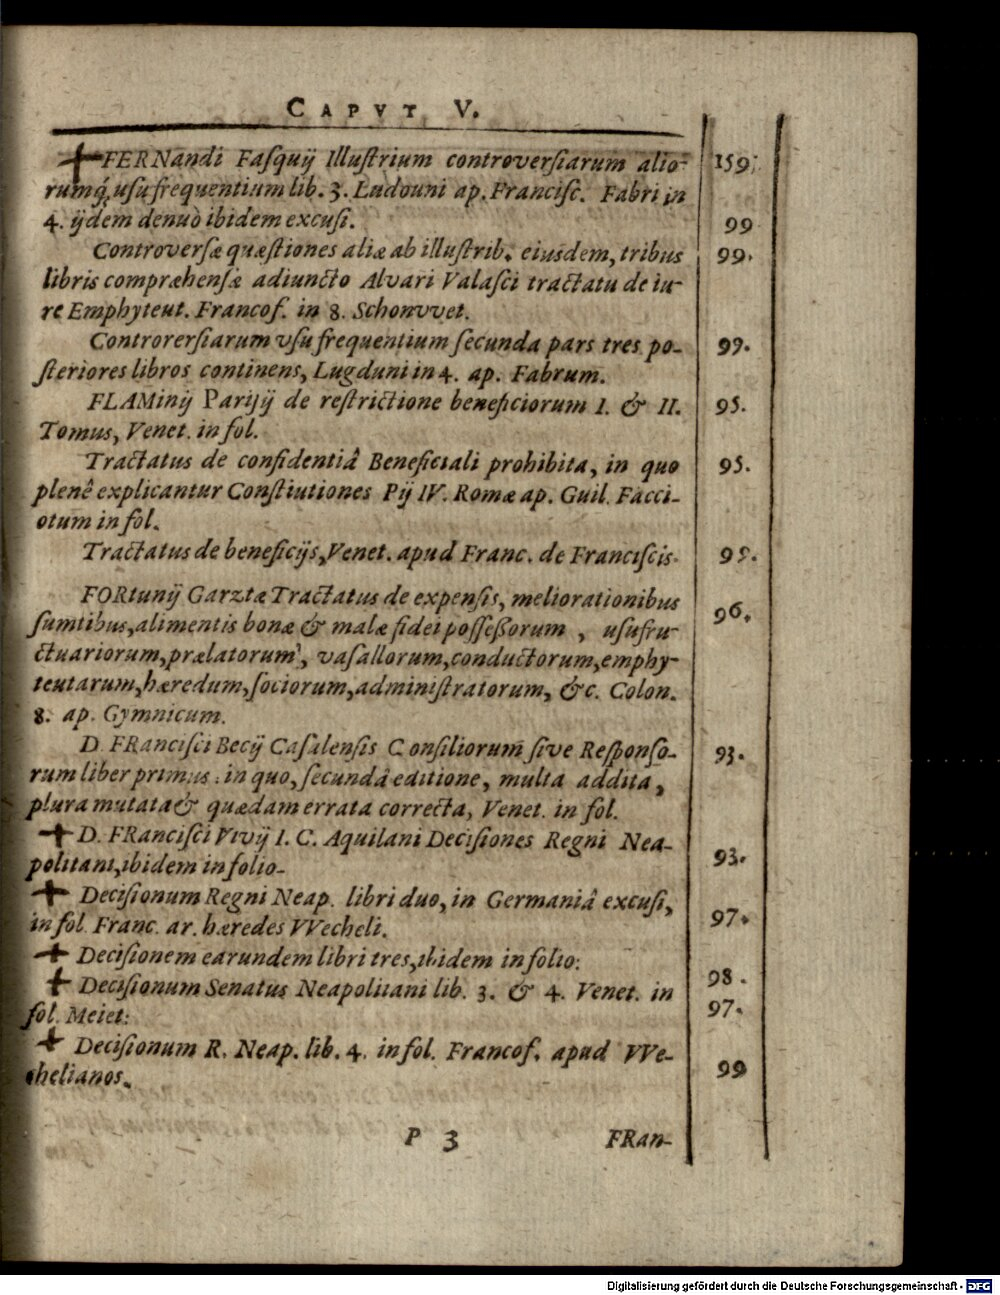 CAPVT V.
✝FERNandi Fasquij Illustrium controversiarum alio- 159.
rumq́; usu frequentium lib. 3. Ludouni ap. Francisc. Fabri in
4. ijdem denuò ibidem excusi. 99
Controversæ quæstiones aliæ ab illustrib. eiusdem, tribus 99.
libris compræhensæ adiuncto Alvari Valasci tractatu de iu-
re Emphyteut. Francof. in 8. Schonvvet.
Controrersiarum vsu frequentium secunda pars tres po- 99.
steriores libros continens, Lugduni in 4. ap. Fabrum.
FLAMinij Parijij de restrictione beneficiorum I. & II. 95.
Tomus, Venet. in fol.
Tractatus de confidentiâ Beneficiali prohibita, in quo 95.
plenê explicantur Constiutiones Pij IV. Romæ ap. Guil. Facci-
otum in fol.
Tractatus de beneficijs, Venet. apud Franc. de Franciscis. 95.
FORtunij Garztæ Tractatus de expensis, meliorationibus 96.
sumtibus, alimentis bonæ & malæ fidei possessorum, usufru-
ctuariorum, prælatorum, vasallorum, conductorum, emphy-
teutarum, hæredum, sociorum, administratorum, &c. Colon.
8. ap. Gymnicum.
D. FRAncisci Becij Casalensis Consiliorum sive Responso- 93.
rum liber primus: in quo, secundâ editione, multa addita,
plura mutata & quædam errata correcta, Venet. in fol.
✝ D. FRAncisci Vivij I. C. Aquilani Decisiones Regni Nea- 93.
politani, ibidem in folio.
✝ Decisionum Regni Neap. libri duo, in Germaniâ excusi, 97.
in fol. Franc. ar. hæredes VVecheli.
✝ Decisionem earundem libri tres, ibidem in folio: 98.
✝ Decisionum Senatus Neapolitani lib. 3. & 4. Venet. in 97.
fol. Meiet:
✝ Decisionum R. Neap. lib. 4. in fol. Francof. apud VVe- 99
chelianos.
P 3 FRan-
Digitalisierung gefördert durch die Deutsche Forschungsgemeinschaft - DFG